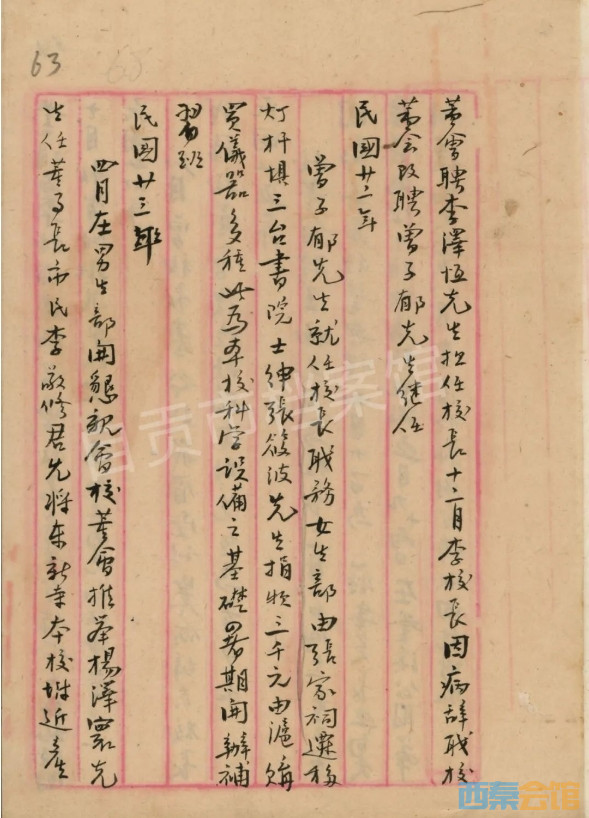 63
董會聘李澤恆先生担任校長十二月李校長因病辞职校
董会改聘曾子郁先生继任
民國廿二年
曾子郁先生就任校長職務女生部由張家祠遷移
灯杆壩三台書院士绅張筱波先生捐欵三千元由滬購
買儀器多種此為本校科学設備之基礎暑期開辦補
習班
民國廿三年
四月在男生部開懇親會校董會推举楊澤寰先
生任董事長市民李敬修君先將束新寺本校坿近產
自贡市档案馆
西秦会馆